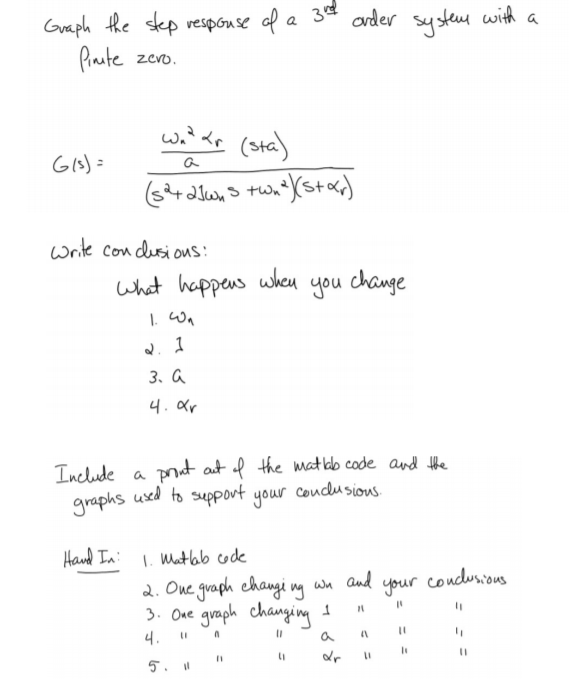 Graph the step response of a 3rd order system with a
finite zero.
G(s) = ωn² αr / a (s+a)
(s²+2ζωn s +ωn²)(s+αr)
Write conclusions:
What happens when you change
1. ωn
2. ζ
3. a
4. αr
Include a print out of the matlab code and the
graphs used to support your conclusions.
Hand In: 1. Matlab code
2. One graph changing ωn and your conclusions
3. One graph changing ζ " " "
4. " " " a " " "
5. " " " αr " " "